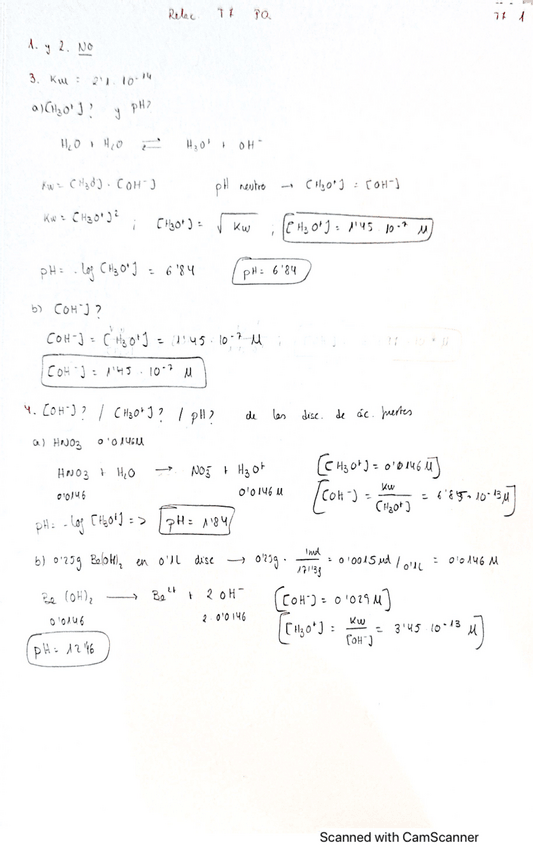 Relac T7 PQ
T7 1
1. y 2. No
3. Kw = 2'1 . 10⁻¹⁴
a) [H₃O⁺]? y pH?
H₂O + H₂O ⇌ H₃O⁺ + OH⁻
Kw = [H₃O⁺] · [OH⁻] pH neutro → [H₃O⁺] = [OH⁻]
Kw = [H₃O⁺]² ; [H₃O⁺] = √Kw ; [H₃O⁺] = 1'45 · 10⁻⁷ M
pH = - log [H₃O⁺] = 6'84 pH = 6'84
b) [OH⁻]?
[OH⁻] = [H₃O⁺] = 1'45 · 10⁻⁷ M
[OH⁻] = 1'45 · 10⁻⁷ M
4. [OH⁻]? / [H₃O⁺]? / pH? de las disc. de ác. fuertes
a) HNO₃ 0'0146M
HNO₃ + H₂O → NO₃⁻ + H₃O⁺ [H₃O⁺] = 0'0146 M
0'0146 0'0146 M [OH⁻] = Kw/[H₃O⁺] = 6'85 · 10⁻¹³ M
pH = - log [H₃O⁺] => pH = 1'84
b) 0'25g Ba(OH)₂ en 0'1L disc → 0'25g · 1mol/171'3g = 0'0015 mol / 0'1L = 0'0146 M
Ba (OH)₂ → Ba²⁺ + 2 OH⁻ [OH⁻] = 0'029 M
0'0146 2 · 0'0146 [H₃O⁺] = Kw/[OH⁻] = 3'45 · 10⁻¹³ M
pH = 12'46
Scanned with CamScanner